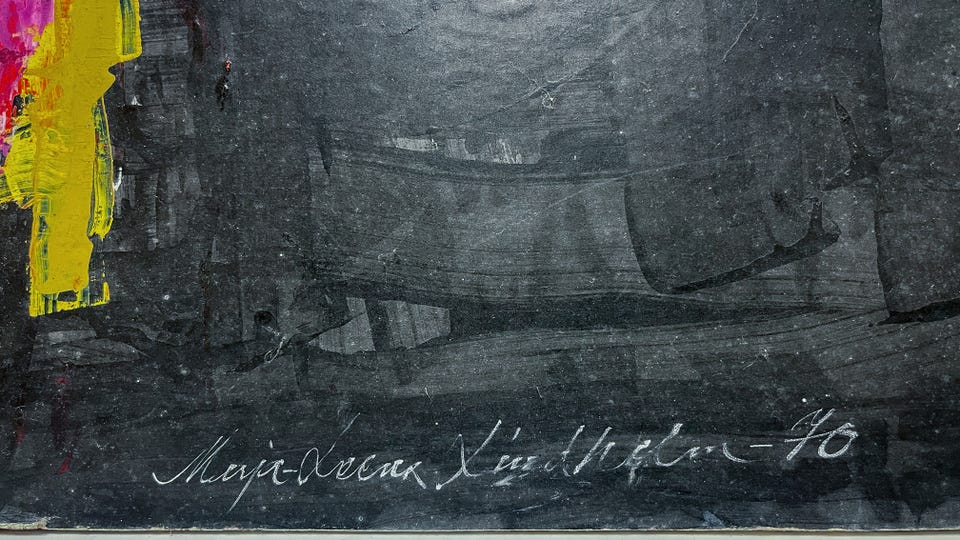 Marja-Leena Lindholm - 70